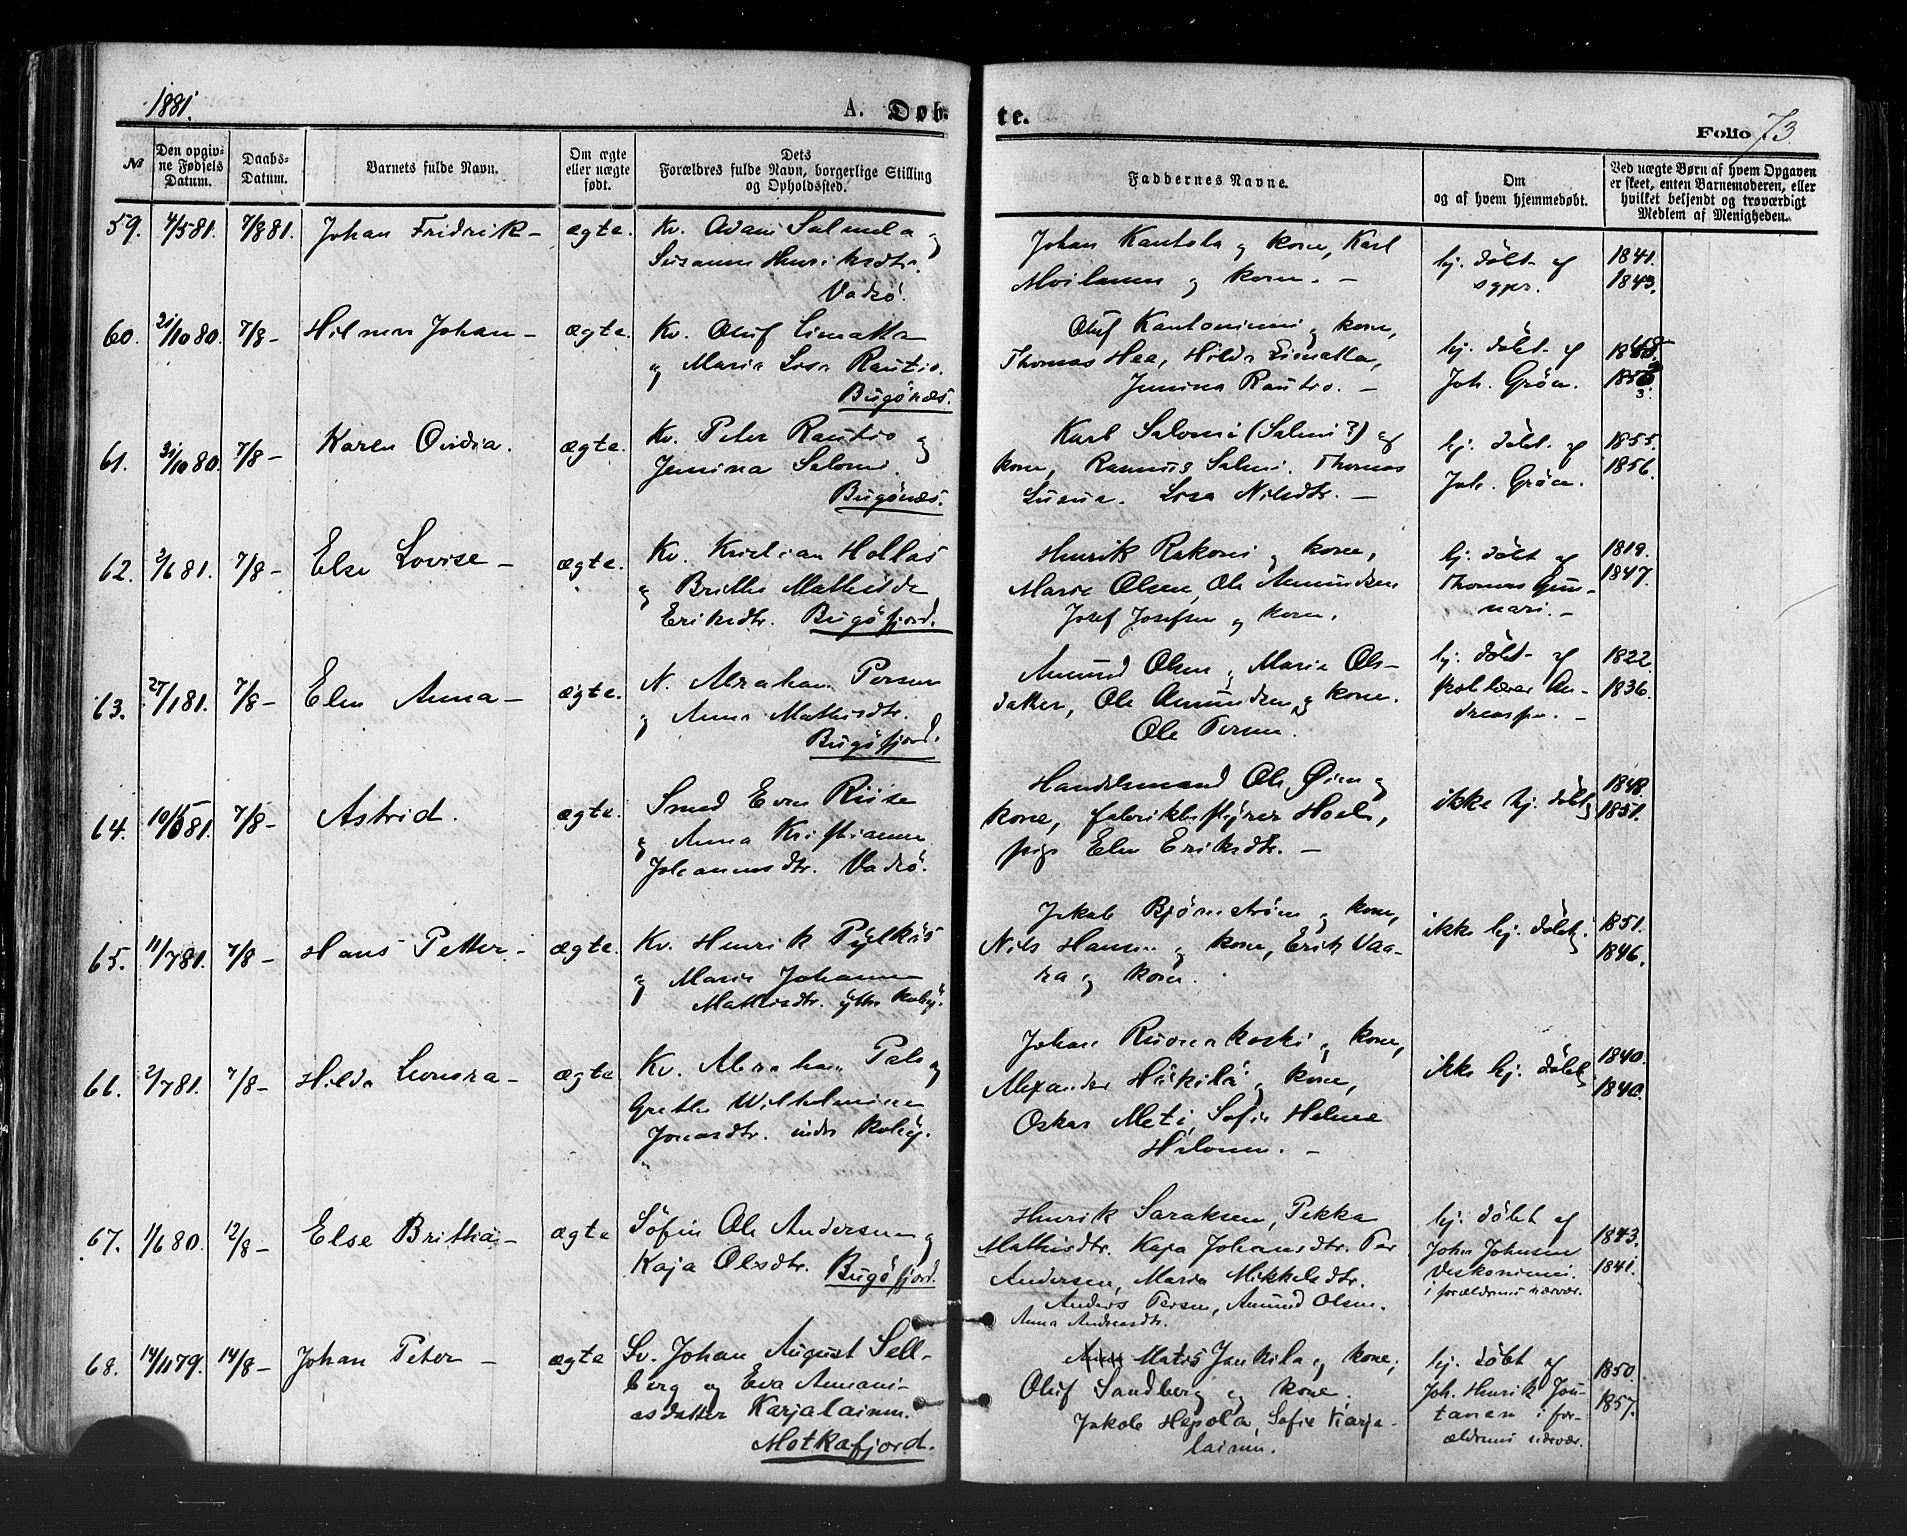 1881.
A. Døb-
te.
Folio 73
№
Den opgiv-
ne Fødsels
Datum.
Daabs-
Datum.
Barnets fulde Navn.
Om ægte
eller uægte
født.
Dets
Forældres fulde Navn, borgerlige Stilling
og Opholdssted.
Faddernes Navne.
Om
og af hvem hjemmedøbt.
Ved uægte Børn af hvem Opgaven
er skeet, enten Barnemoderen, eller
hvilket betjendt og troværdigt
Medlem af Menigheden.
59. 4/5 81. 7/8 81. Johan Fridrik – ægte.
Kv. Adam Salmela og
Susanna Henriksdtr.
Vadsø.
Johan Kantola og kone, Karl
Moilanen og kone. –
hj. døbt af
sgpr.
1841.
1843.
60. 21/10 80. 7/8 – Hilmar Johan – ægte.
Kv. Oluf Limatta
og Maria Lisa Rautio.
Bugønæs.
Oluf Kantoniemi og kone,
Thomas Hea, Hilda Limatta,
Jemina Rautio. –
hj. døbt af
Joh. Grøn.
61. 31/10 80. 7/8 – Karen Ovidia. ægte.
Kv. Peter Rautio og
Jemina Salomi.
Bugønæs.
Karl Salomi (Salmi?) og
kone, Rasmus Salmi. Thomas
Lisa Nilsdtr. –
hj. døbt af
Joh. Grøn.
1855.
1856.
62. 3/6 81. 7/8 – Else Lovise – ægte.
Kv. Kristian Hollas
og Britha Mathilde
Eriksdtr. Bugøfjord.
Henrik Rakoni og kone,
Marie Olsen, Ole Amundsen
Josef Josefsen og kone.
hj. døbt af
Thomas Gun-
nari. –
1819.
1847.
63. 27/1 81. 7/8 – Elen Anna – ægte.
N. Abraham Persen
og Anna Mathisdtr.
Bugøfjord.
Amund Olsen og Marie Ols-
datter, Ole Amundsen og kone.
Ole Persen.
hj. døbt af
An-
1822.
1836.
64. 10/5 81. 7/8 – Astrid. ægte.
Smed Even Riise
og Anna Kristianne
Johannesdtr. Vadsø.
Handelsmand Ole Øien og
kone, fabrikbestyrer Hoel,
pige Elen Eriksdtr. –
ikke hj. døbt
1848.
1851.
65. 11/7 81. 7/8 – Hans Petter – ægte.
Kv. Henrik Pylkäs
og Maria Johanna
Mathisdtr. ytre kvby.
Jakob Bjørnstrøm og kone,
Nils Hansen og kone, Erik Vaa-
ra og kone.
ikke hj. døbt
1851.
1846.
66. 2/7 81. 7/8 – Hilda Leonora – ægte
Kv. Abraham Palo og
Grethe Wilhelmine
Jonasdtr. indre kvby.
Johan Ruonakoski og kone,
Alexander Heikilä og kone,
Oskar Meti, Sofie Helena
Halonen. –
ikke hj. døbt
1840.
1840.
67. 1/6 80. 12/8 – Else Britha – ægte
Søfin Ole Andersen og
Kaja Olsdtr. Bugøfjord.
Henrik Saraksen, Pekka
Mathisdtr. Kaja Johansdtr. Per
Andersen, Maria Mikkelsdtr.
Anders Persen, Amund Olsen.
Anna Andreasdtr.
hj. døbt af
John Johnsen
Veskoniemi.
i forældrenes nærvær.
1843.
1841.
68. 14/11 79. 14/8 – Johan Peter – ægte
Sv. Johan August Sell-
berg og Eva Annani-
asdatter Karjalainen.
Motkafjord.
Matis Jankila og kone,
Oluf Sandberg og kone.
Jakob Hepola, Sofie Karja-
lainen.
hj. døbt af
Joh. Henrik Jou-
tanen i for-
ældrenes nærvær.
1850.
1857.